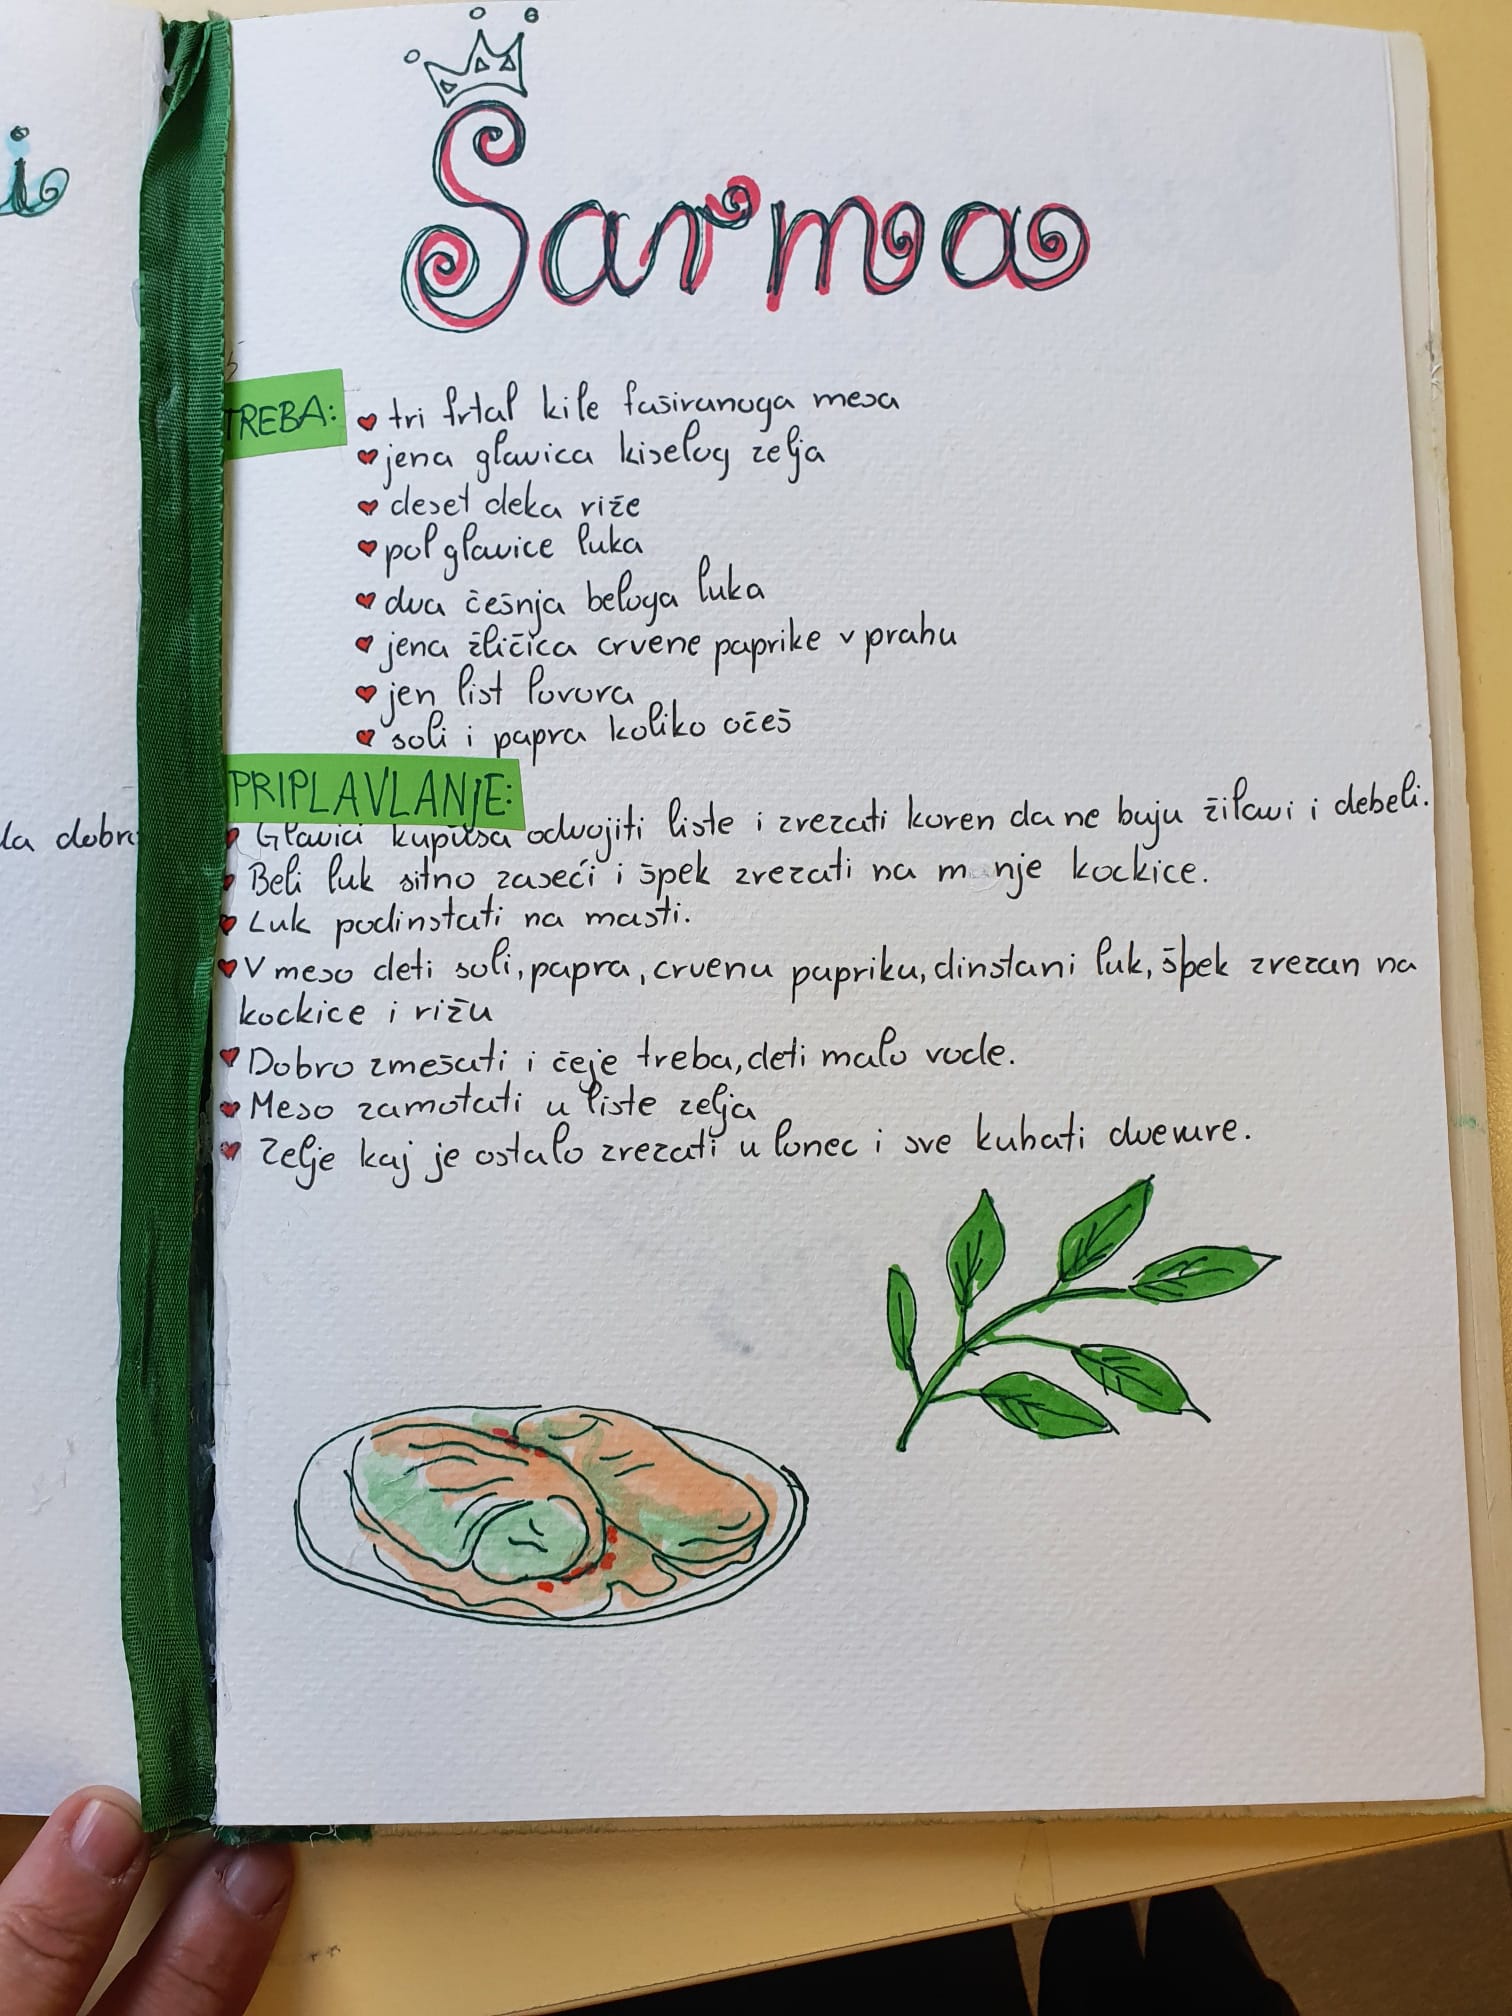 i
Sarma
TREBA:
tri frtal kile faširanoga mesa
jena glavica kiselog zelja
deset deka riže
pol glavice luka
dva češnja beloga luka
jena žličica crvene paprike v prahu
jen list lovora
soli i papra koliko očeš
PRIPLAVLANJE:
la dobro
Glavici kupusa odvojiti liste i zrezati koren da ne buju žilavi i debeli.
Beli luk sitno zaseći i špek zrezati na manje kockice.
Luk podinstati na masti.
V meso deti soli, papra, crvenu papriku, dinstani luk, špek zrezan na
kockice i rižu
Dobro zmešati i čeje treba, deti malo vode.
Meso zamotati u liste zelja
Zelje kaj je ostalo zrezati u lonec i sve kuhati dve vure.